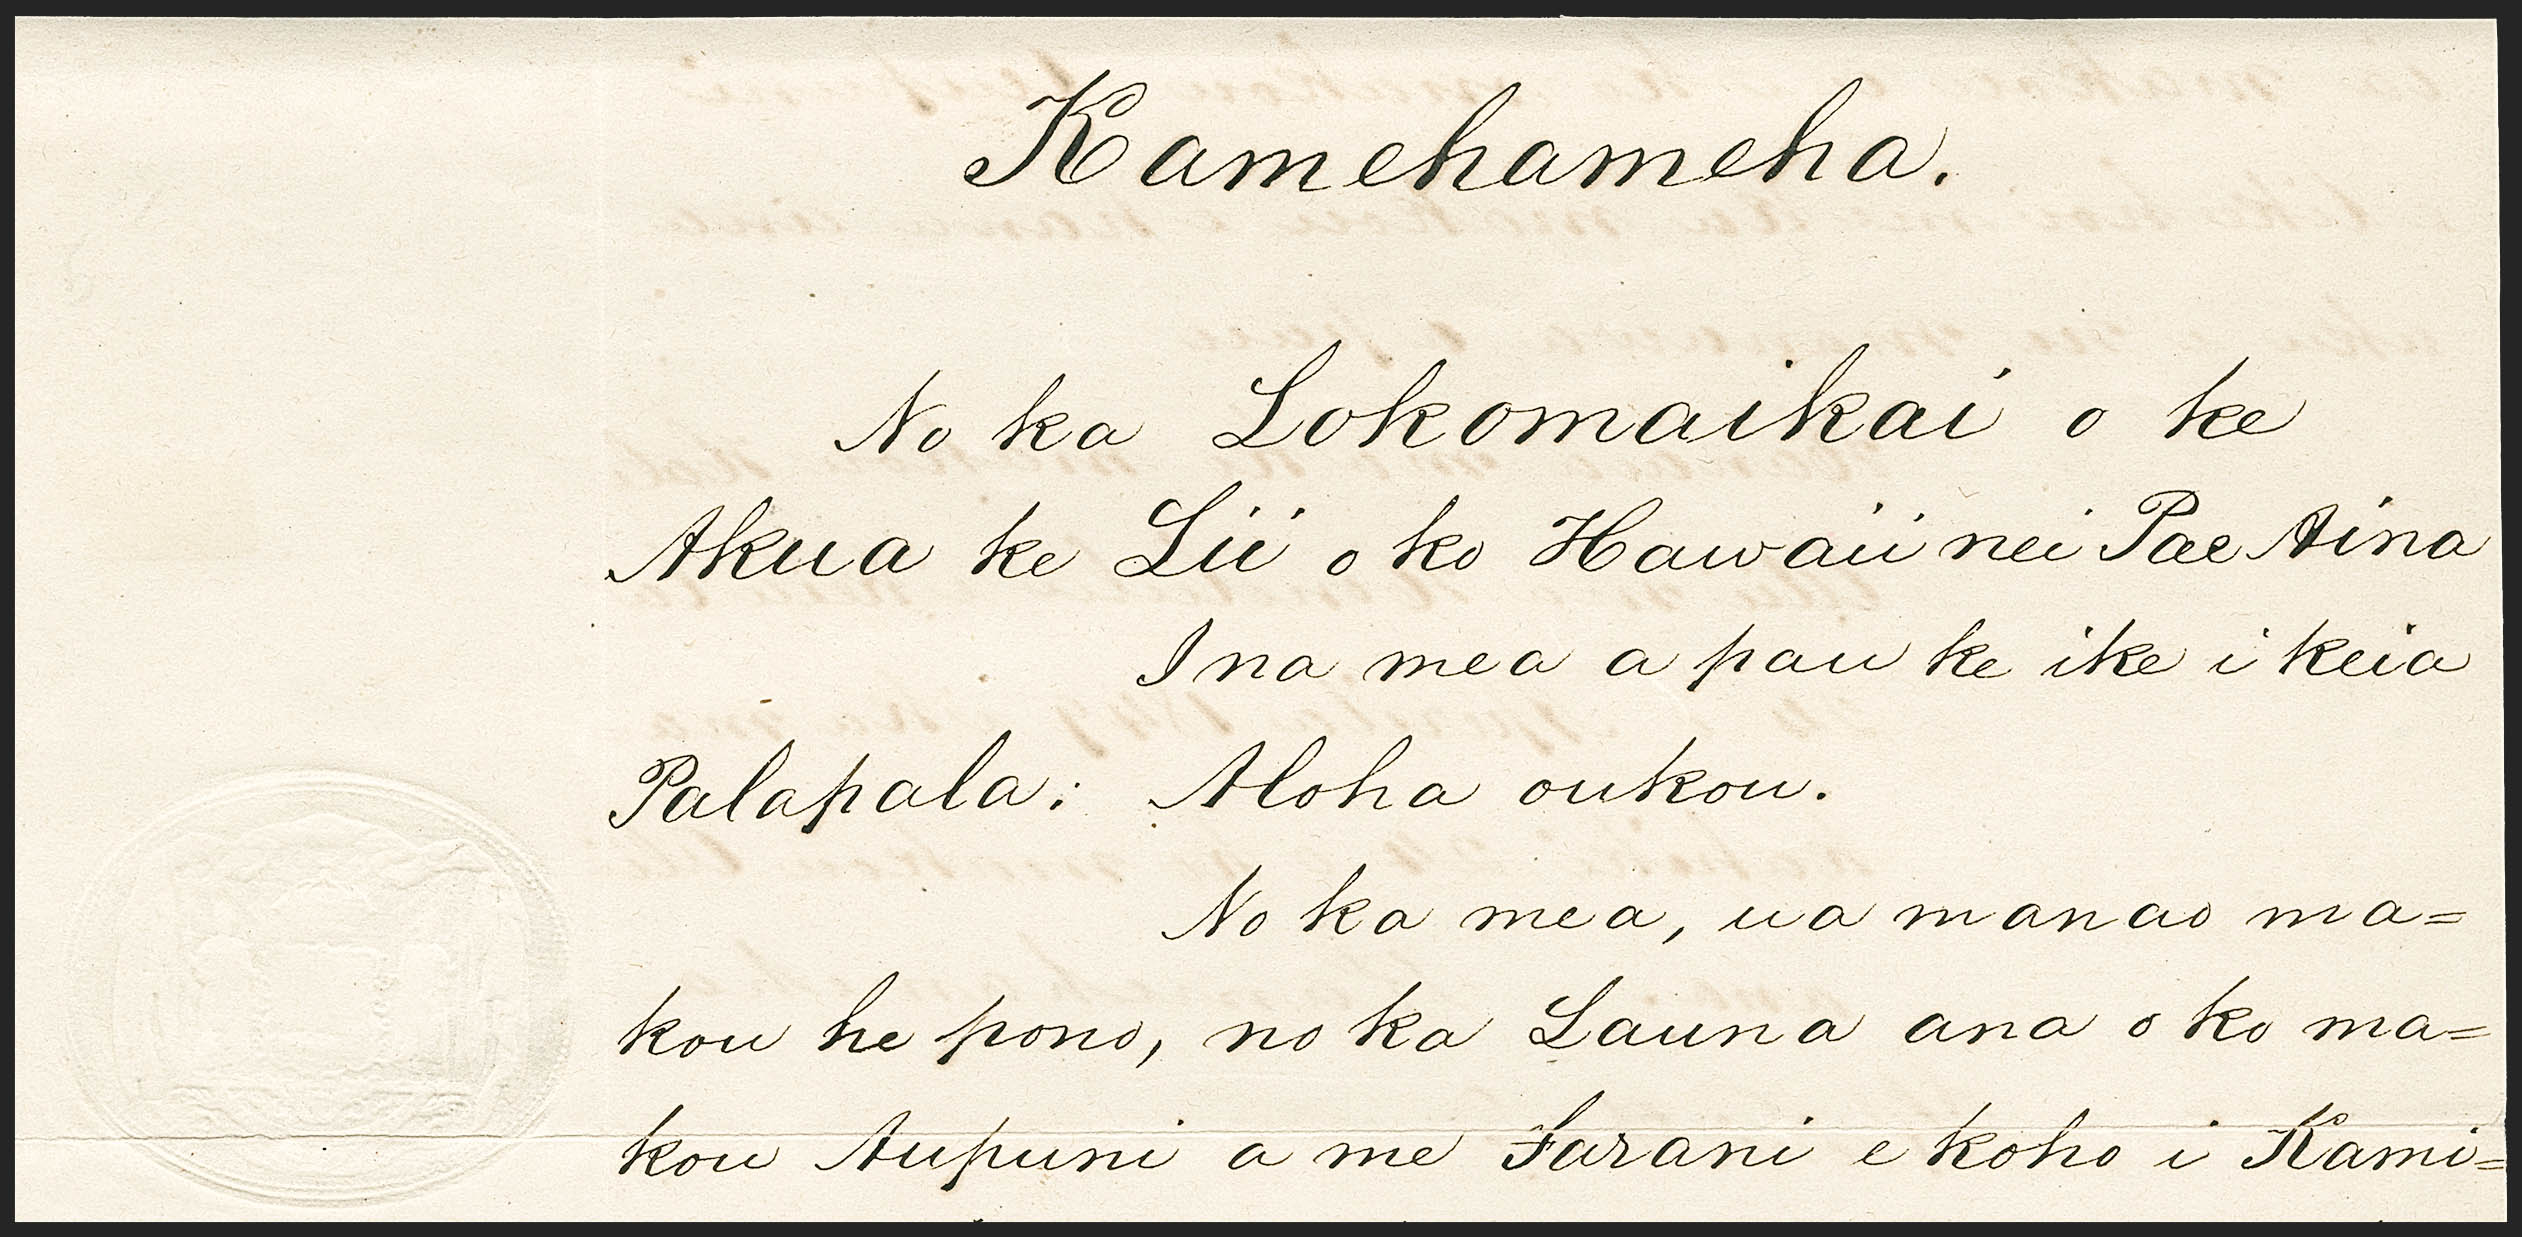 Kamehameha.
No ka Lokomaikai o ke
Akua ke Lii o ko Hawaii nei Pae Aina
I na mea a pau ke ike i keia
Palapala: Aloha oukou.
No ka mea, ua manao ma=
kou he pono, no ka Launa ana o ko ma=
kou Aupuni a me Farani e koho i Kami=